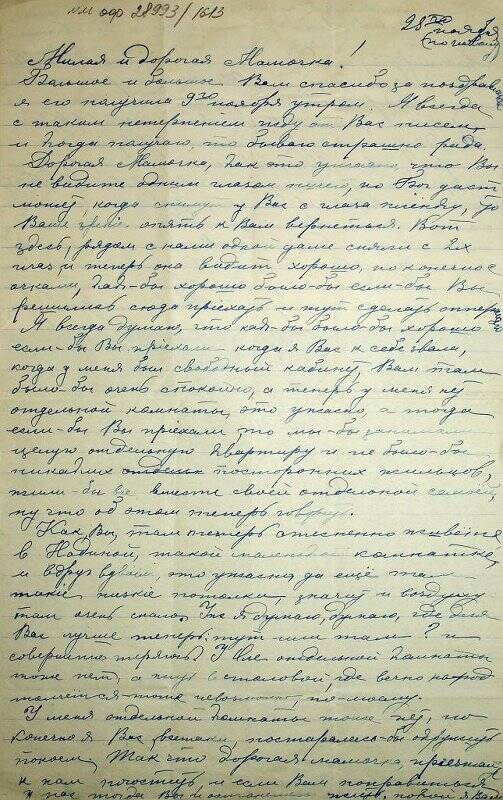 мм офр 28993/1613
28го ноября
(по новому)
Милая и дорогая Мамочка!
Большое и большое Вам спасибо за поздравление
я его получила 9го ноября утром. Я всегда
с таким нетерпением жду от Вас писем,
и когда получаю, то бываю страшно рада.
Дорогая Мамочка, как это ужасно что Вы
не видите одним глазом ничего, но Бог даст
может, когда снимут у Вас с глаза пленку, то
Ваше зрение опять к Вам вернеться. Вот
здесь, рядом с нами одной даме сняли с 2х
глаз и теперь она видит хорошо, но конечно с
очками, как-бы хорошо было-бы если-бы Вы
решились сюда приехать и тут сделать операцию
Я всегда думаю, что как-бы было-бы хорошо
если-бы Вы приехали когда я Вас к себе звала,
когда у меня был свободный кабинет, Вам там
было-бы очень спокойно, а теперь у меня нет
отдельной комнаты, это ужасно, а тогда
если-бы Вы приехали, то мы-бы занимали
целую отдельную квартиру и не было-бы
никаких посторонних жильцов,
жили-бы все вместе своей отдельной семьей,
ну что об этом теперь говорить.
Как Вы, там теперь стесненно живёте
в Надиной, такой маленькой комнатке,
и вдруг вдвоем, это ужасно, да ещё там
такие низкие потолки, значит и воздуху
там очень мало. Уж я думаю, думаю, где для
Вас лучше теперь: тут или там? и
совершенно теряюсь? У Оле отдельной комнаты
тоже нет, а жить в столовой, где вечно народ
толчется - тоже невозможно, по-моему.
У меня отдельной комнаты тоже нет, но
конечно я Вас, всетаки постаралась-бы окружить
покоем. Так что дорогая мамочка, приезжайте
к нам погостить, и если Вам понравиться
у нас тогда Вы и останетесь жить,